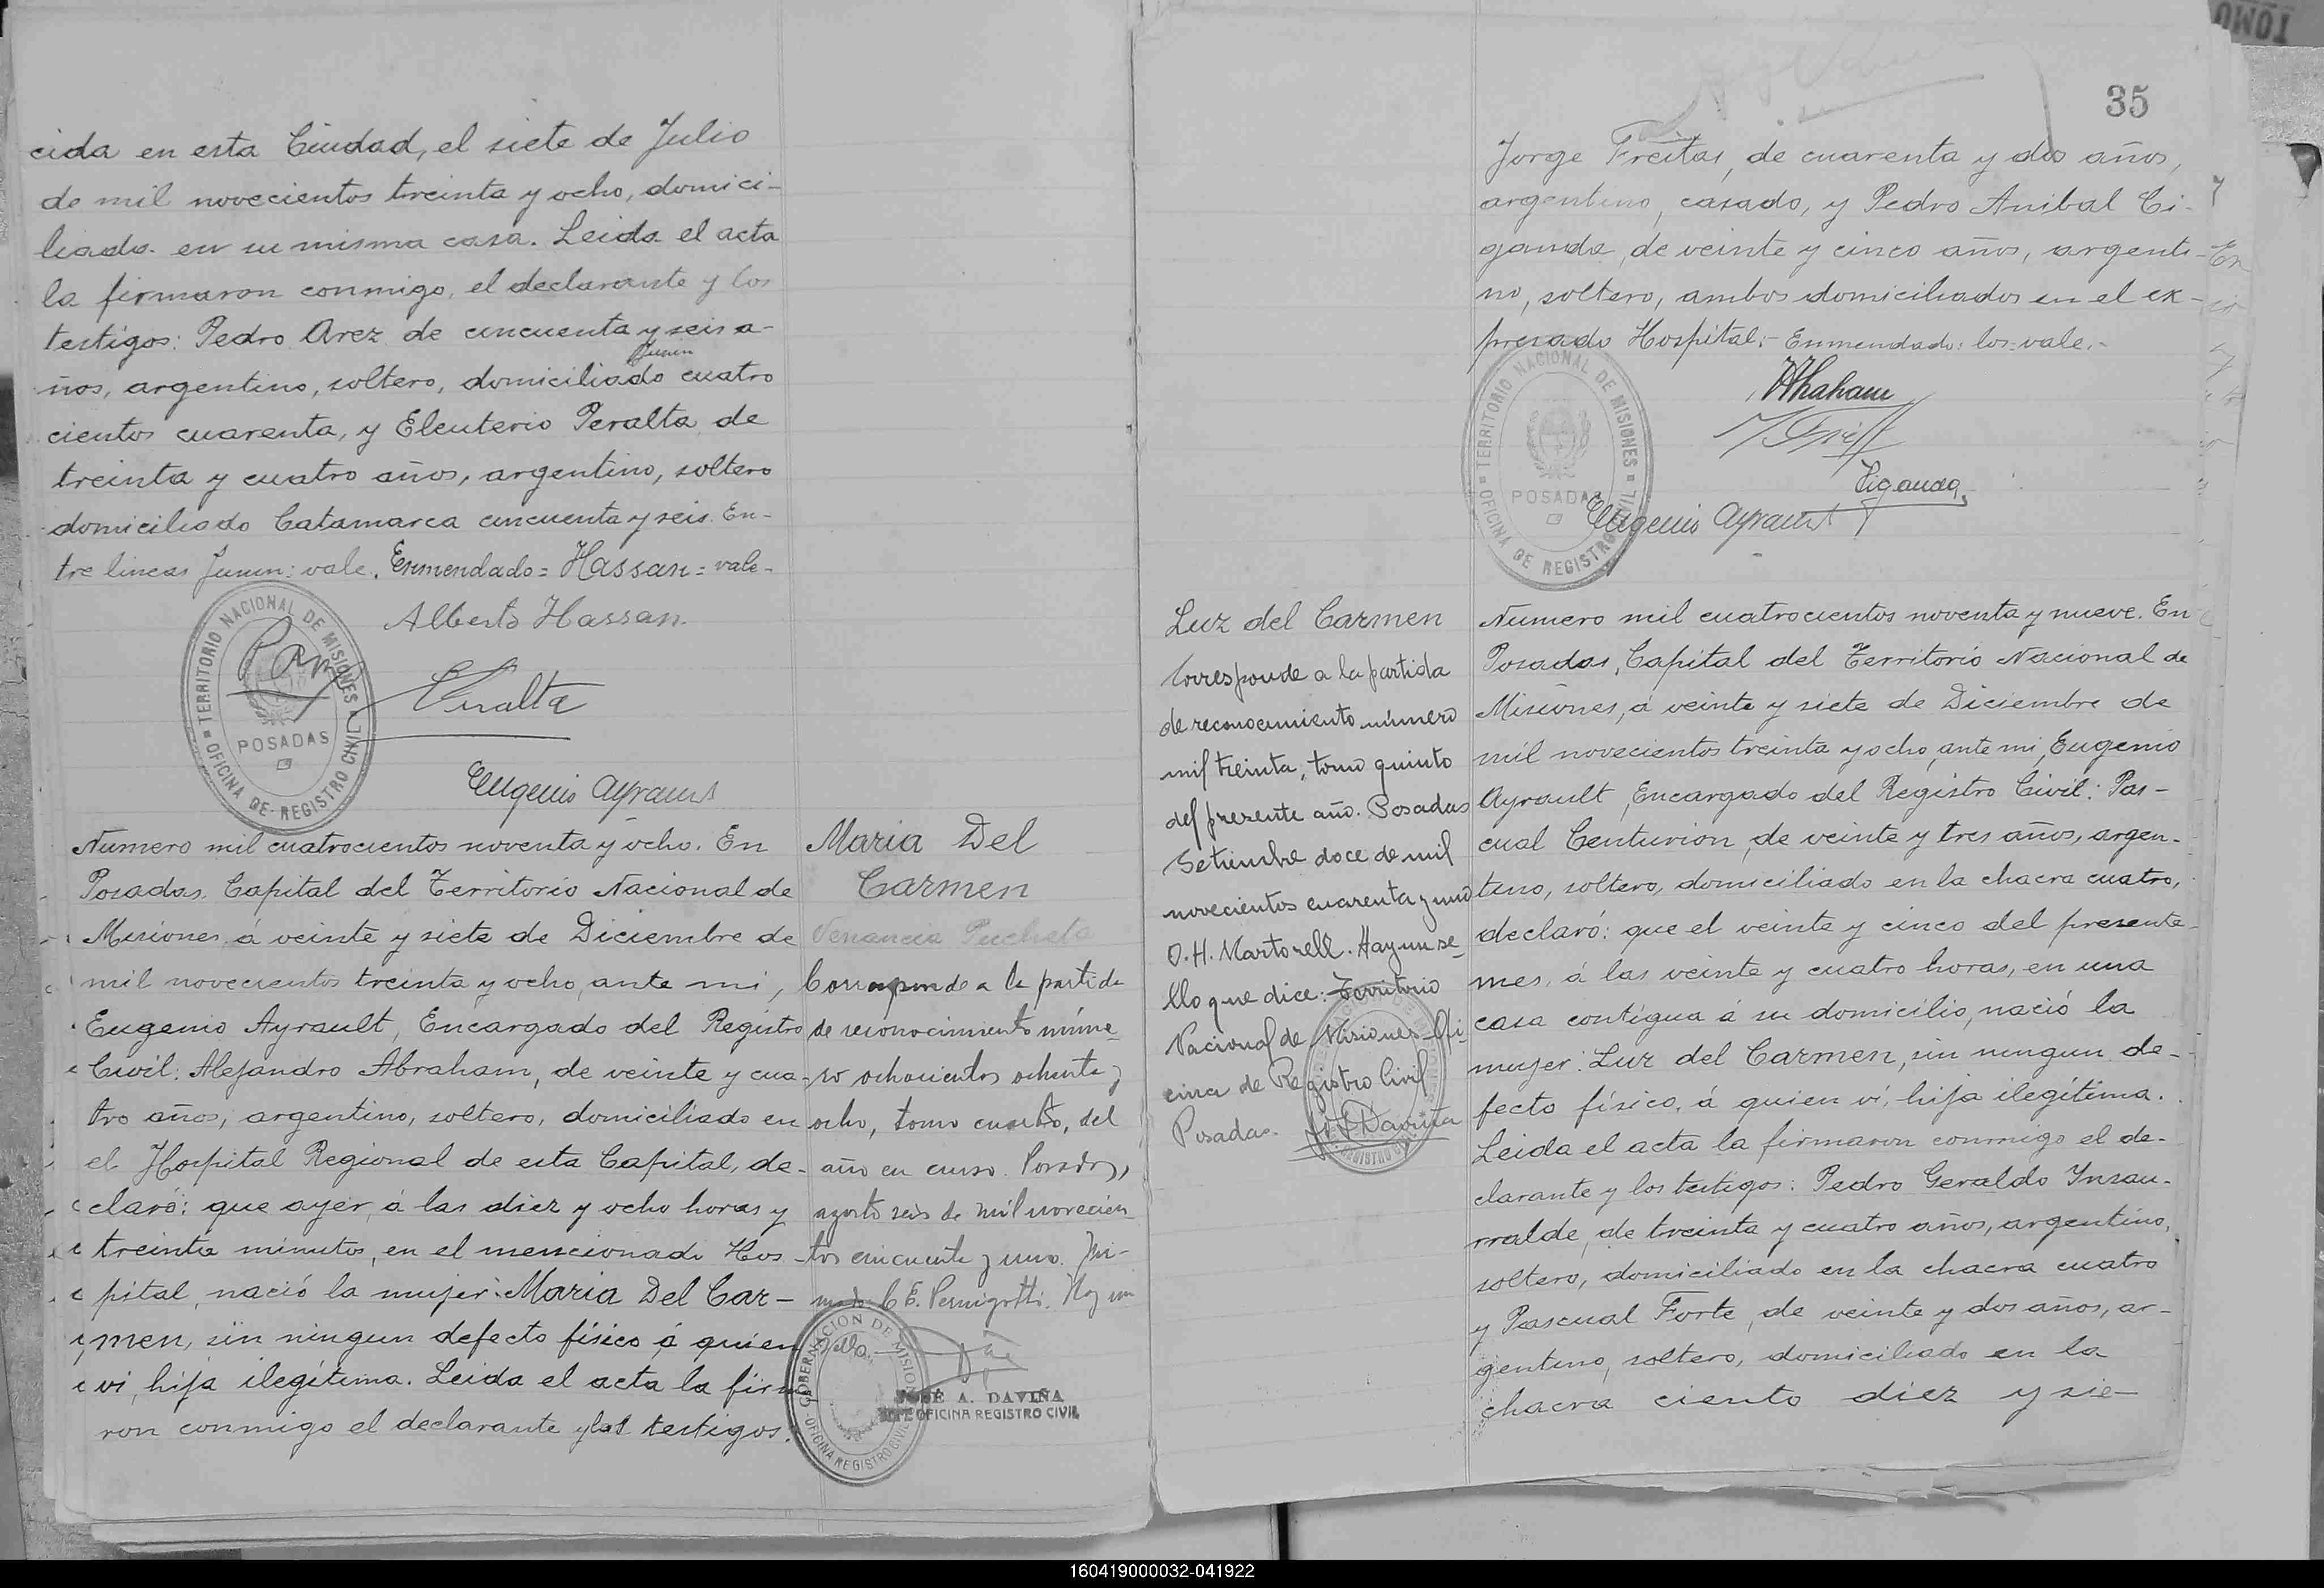 cida en esta Ciudad, el siete de Julio
de mil novecientos treinta y ocho, domici-
liada en su misma casa. Leida el acta
la firmaron conmigo, el declarante y los
testigos: Pedro Arez de cincuenta y seis a-
Junin
ños, argentino, soltero, domiciliado cuatro
cientos cuarenta, y Eleuterio Peralta de
treinta y cuatro años, argentino, soltero
domiciliado Catamarca cincuenta y seis. En-
tre lineas Junin: vale. Enmendado = Hassan = vale-
Alberto Hassan.
Peralta
TERRITORIO NACIONAL DE MISIONES
POSADAS
OFICINA DE REGISTRO CIVIL
Eugenio Ayrault
Numero mil cuatrocientos noventa y ocho. En
Posadas, Capital del Territorio Nacional de
Misiones, á veinte y siete de Diciembre de
mil novecientos treinta y ocho, ante mi,
Eugenio Ayrault, Encargado del Registro
Civil: Alejandro Abraham, de veinte y cua-
tro años, argentino, soltero, domiciliado en
el Hospital Regional de esta Capital, de-
claró: que ayer, á las diez y ocho horas y
treinta minutos, en el mencionado Hos-
pital, nació la mujer: Maria Del Car-
men, sin ningun defecto físico á quien
vi, hija ilegítima. Leida el acta la firma
ron conmigo el declarante y los testigos:
Maria Del
Carmen
Venancia Pucheta
Corresponde a la partida
de reconocimiento núme-
ro ochocientos ochenta y
ocho, tomo cuarto, del
año en curso. Posadas,
agosto seis de mil novecien
tos cincuenta y uno. Fir-
mado C. E. Pernigotti. Hay un
sello.
GOBERNACION DE MISIONES
OFICINA REGISTRO CIVIL
JOSÉ A. DAVIÑA
JEFE OFICINA REGISTRO CIVIL
TOMO
35
Jorge Freitas, de cuarenta y dos años,
argentino, casado, y Pedro Anibal Ci-
ganda, de veinte y cinco años, argenti-
no, soltero, ambos domiciliados en el ex-
presado Hospital.- Enmendado: los: vale.-
Ciganda
Eugenio Ayrault
TERRITORIO NACIONAL DE MISIONES
POSADAS
OFICINA DE REGISTRO CIVIL
Luz del Carmen
Corresponde a la partida
de reconocimiento número
mil treinta, tomo quinto
del presente año. Posadas
Setiembre doce de mil
novecientos cuarenta y uno
O. H. Martorell. Hay un se-
llo que dice: Territorio
Nacional de Misiones Ofi-
cina de Registro Civil
Posadas.
Numero mil cuatrocientos noventa y nueve. En
Posadas, Capital del Territorio Nacional de
Misiones, á veinte y siete de Diciembre de
mil novecientos treinta y ocho, ante mi, Eugenio
Ayrault, Encargado del Registro Civil: Pas-
cual Centurion, de veinte y tres años, argen-
tino, soltero, domiciliado en la chacra cuatro,
declaró: que el veinte y cinco del presente
mes, á las veinte y cuatro horas, en una
casa contigua á su domicilio, nació la
mujer: Luz del Carmen, sin ningun de-
fecto físico, á quien vi, hija ilegítima.
Leida el acta la firmaron conmigo el de-
clarante y los testigos: Pedro Geraldo Insau-
rralde, de treinta y cuatro años, argentino,
soltero, domiciliado en la chacra cuatro
y Pascual Forte, de veinte y dos años, ar-
gentino, soltero, domiciliado en la
chacra ciento diez y sie-
160419000032-041922